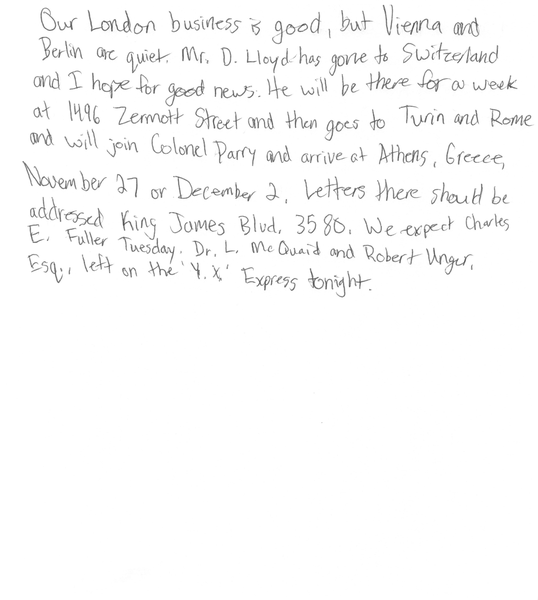 Our London business is good, but Vienna and
Berlin are quiet. Mr. D. Lloyd has gone to Switzerland
and I hope for good news. He will be there for a week
at 1496 Zermott Street and then goes to Turin and Rome
and will join Colonel Parry and arrive at Athens, Greece,
November 27 or December 2. Letters there should be
addressed King James Blvd, 3580. We expect Charles
E. Fuller Tuesday. Dr. L. McQuaid and Robert Unger,
Esq., left on the 'Y.X.' Express tonight.